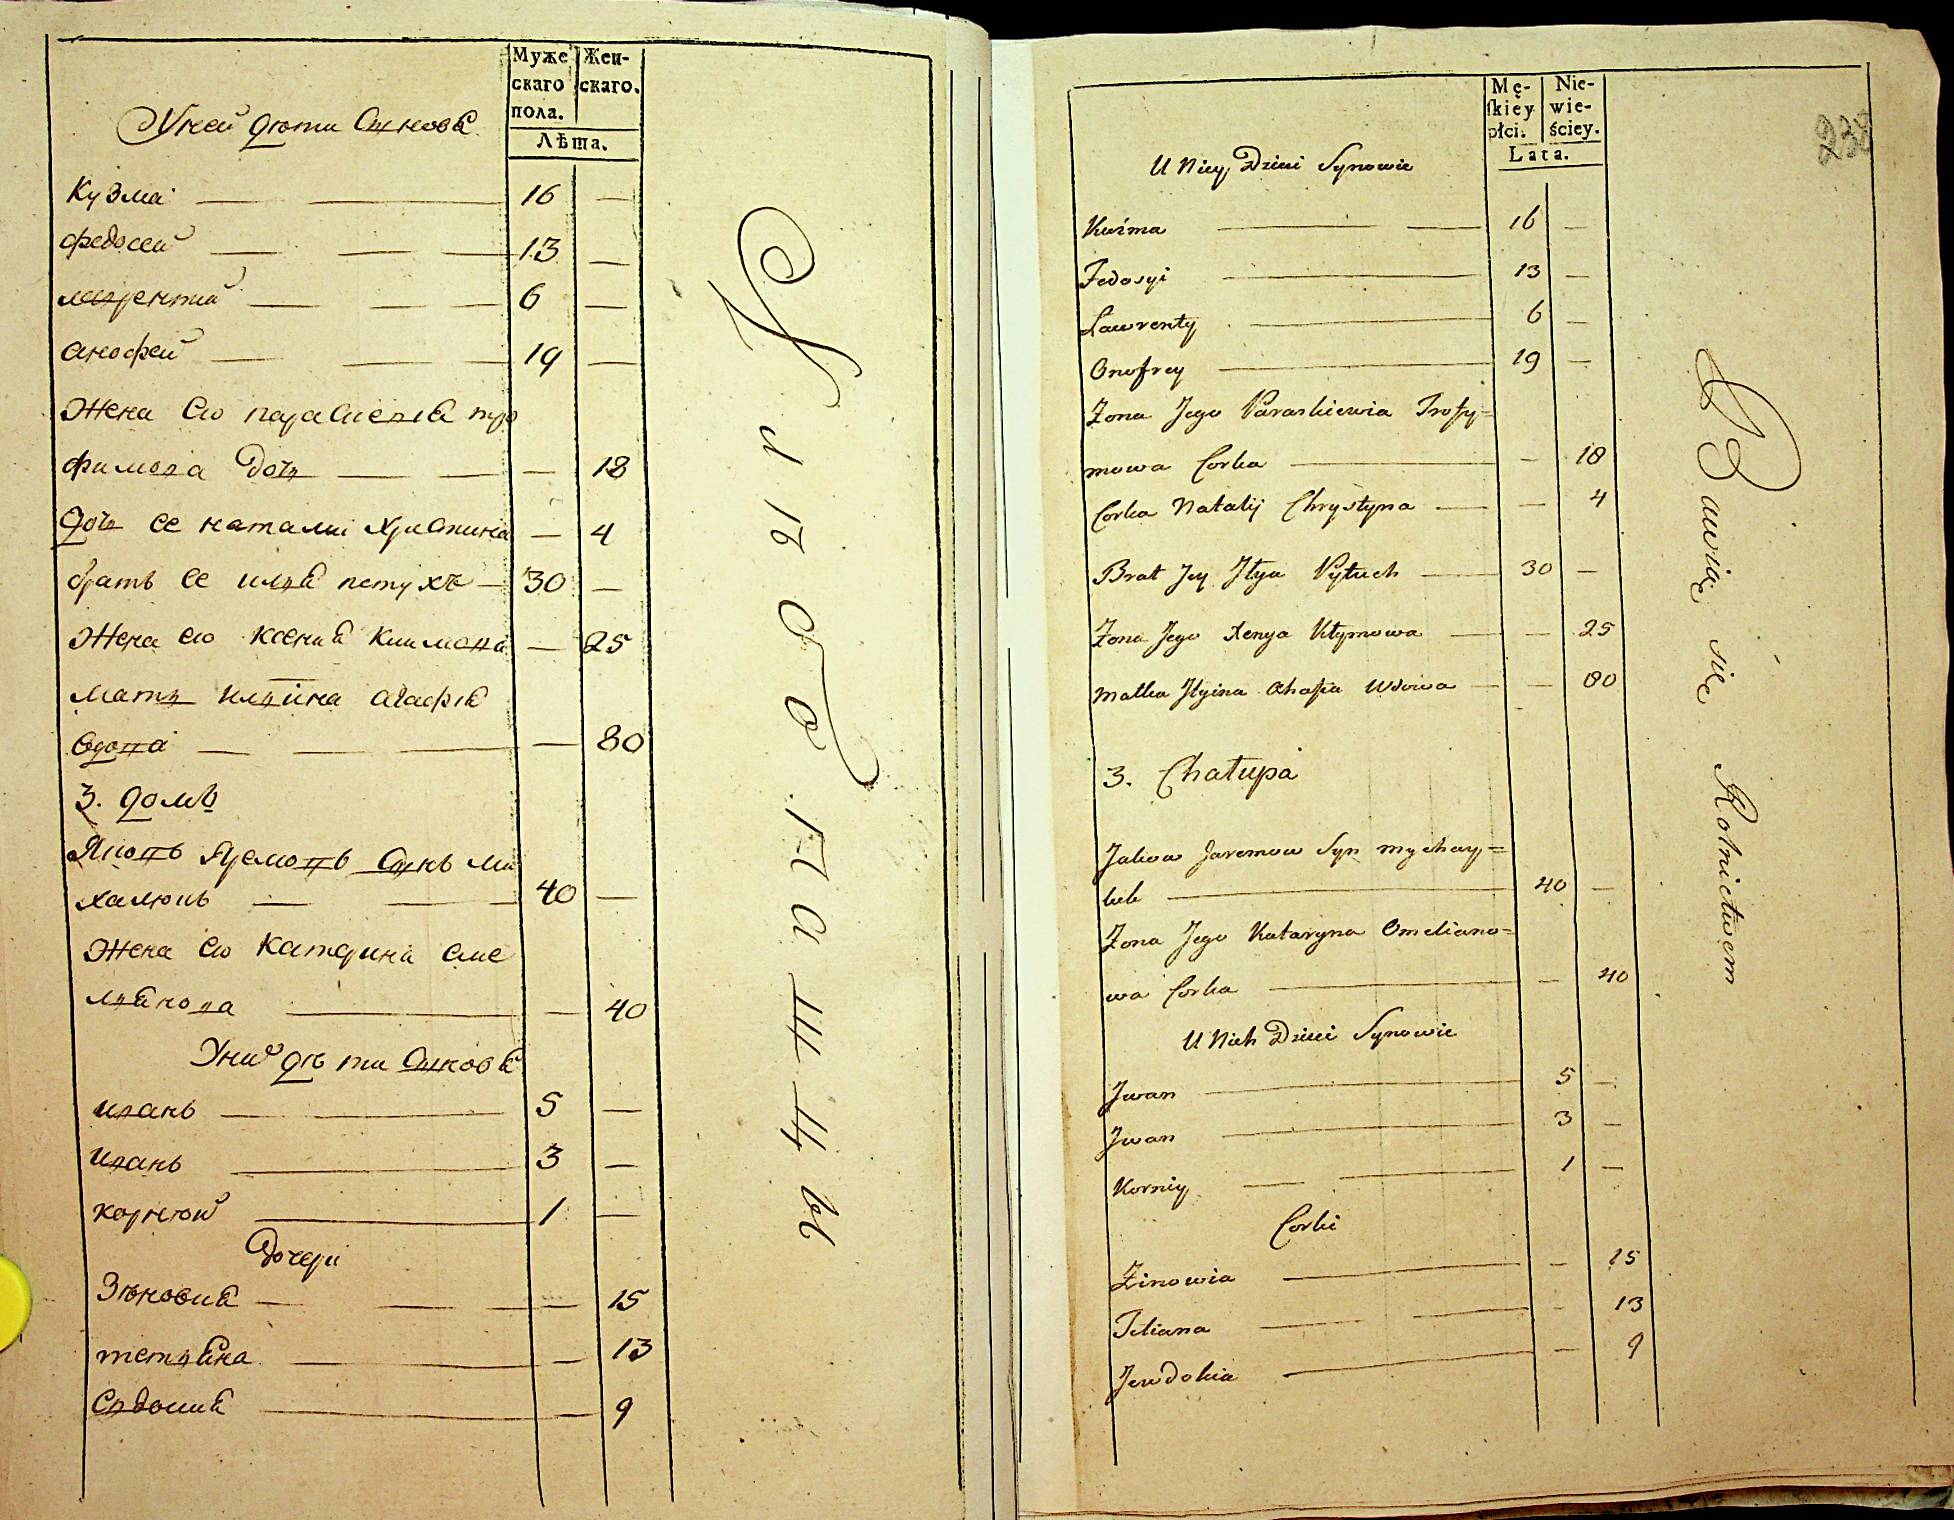 Муже
скаго
пола.
Жен-
скаго.
Лѣта.
У ней дѣти Синовѣ
Кузма — — 16 —
Федосей — — — 13 —
лаврентій — — — 6 —
анофрей — — 19 —
Жена его параскевія тро
фимова дочь — — — 18
дочь ее наталиі Христина — 4
братъ ее илья петухъ — 30 —
Жена его ксения климова — 25
мать ильина агафія
вдова — — — — 80
3. домъ
Яковъ Яремовъ Синъ ми
халюкъ — — 40 —
Жена его катерина еме
льянова — — 40
У них дѣти Синовѣ
иванъ — — 5 —
иванъ — 3 —
корнюй — 1 —
Дочери
Зѣновия — — — — 15
тетяна — — 13
Евдокия — — 9
Крестьянѣ
Mę-
skiey
płci.
Nie-
wie-
ściey.
Lata.
238
U Niey Dzieci Synowie
Kuźma — — 16 —
Fedosyi — 13 —
Lawrenty — 6 —
Onofrey — 19 —
Żona Jego Paraskiewia Trofy=
mowa Corka — — 18
Corka Natalij Chrystyna — — 4
Brat Jey Jłya Pytuch — 30 —
Żona Jego Xenya Kłymowa — — 25
Matka Jłyina Ahafia Wdowa — — 80
3. Chałupa
Jakow Jaremow Syn Mychay=
luk — 40 —
Żona Jego Kataryna Omeliano=
wa Corka — — 40
U Nich Dzieci Synowie
Jwan — 5 —
Jwan — 3 —
Korniy — — 1 —
Corki
Zinowia — — 15
Tetiana — — — 13
Jewdokia — — 9
Bawiąc się Rolnictwem